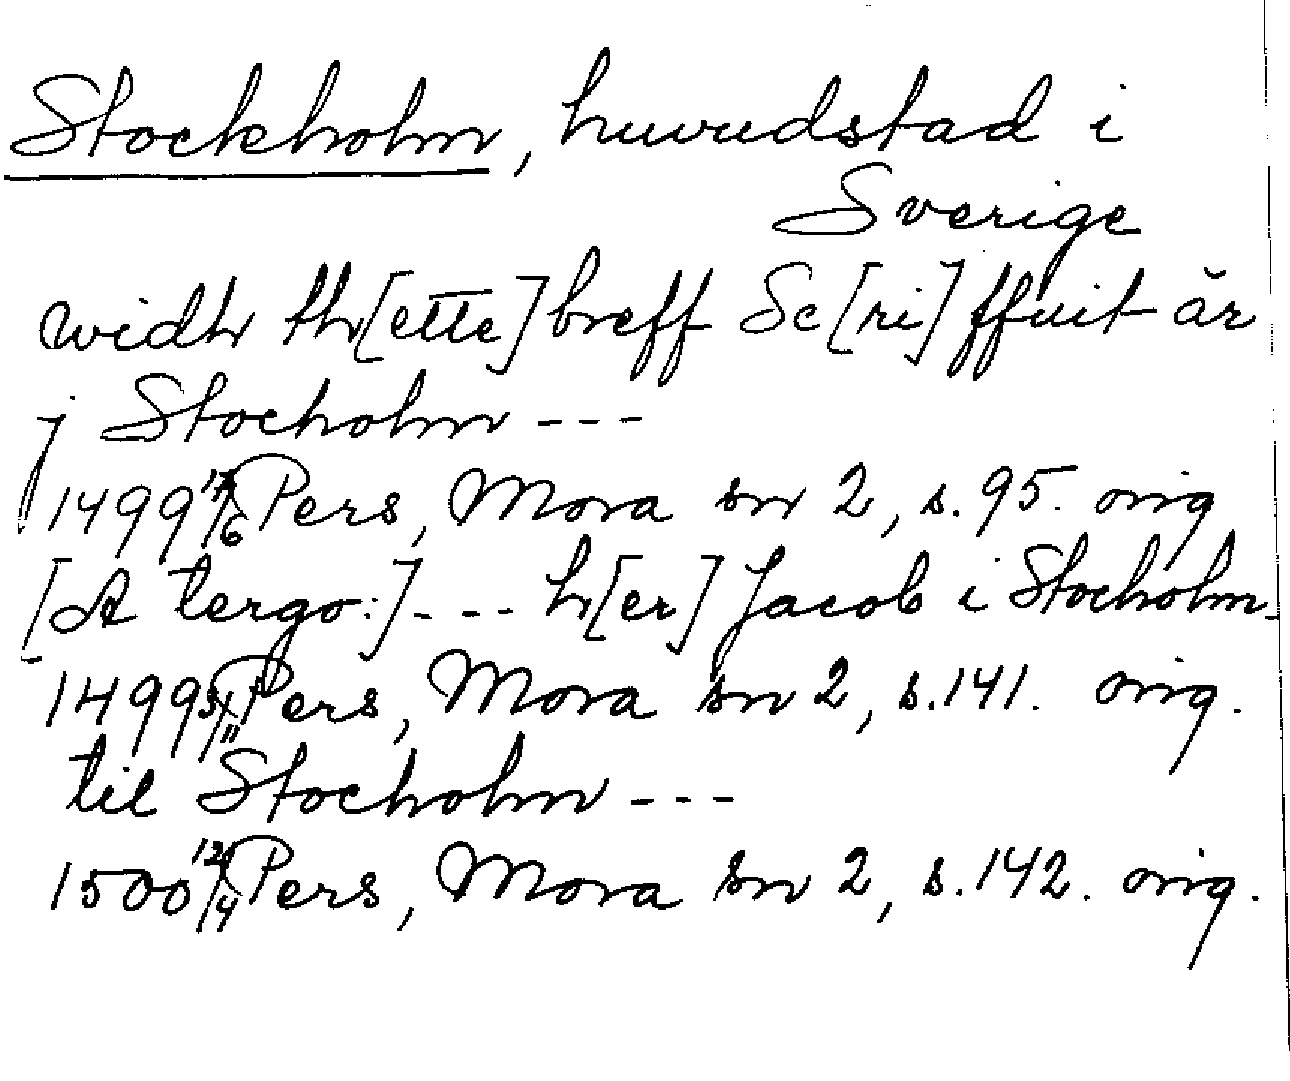 Stockholm, huvudstad i
Sverige
widh th[ette] breff Sc[ri]ffuit är
j Stocholm ---
1499 17/6 Pers, Mora sn 2, s. 95. orig
[A tergo:] --- h[er] Jacob i Stocholm
1499 Pers, Mora sn 2, s. 141. orig.
til Stocholm ---
1500 12/4 Pers, Mora sn 2, s. 142. orig.